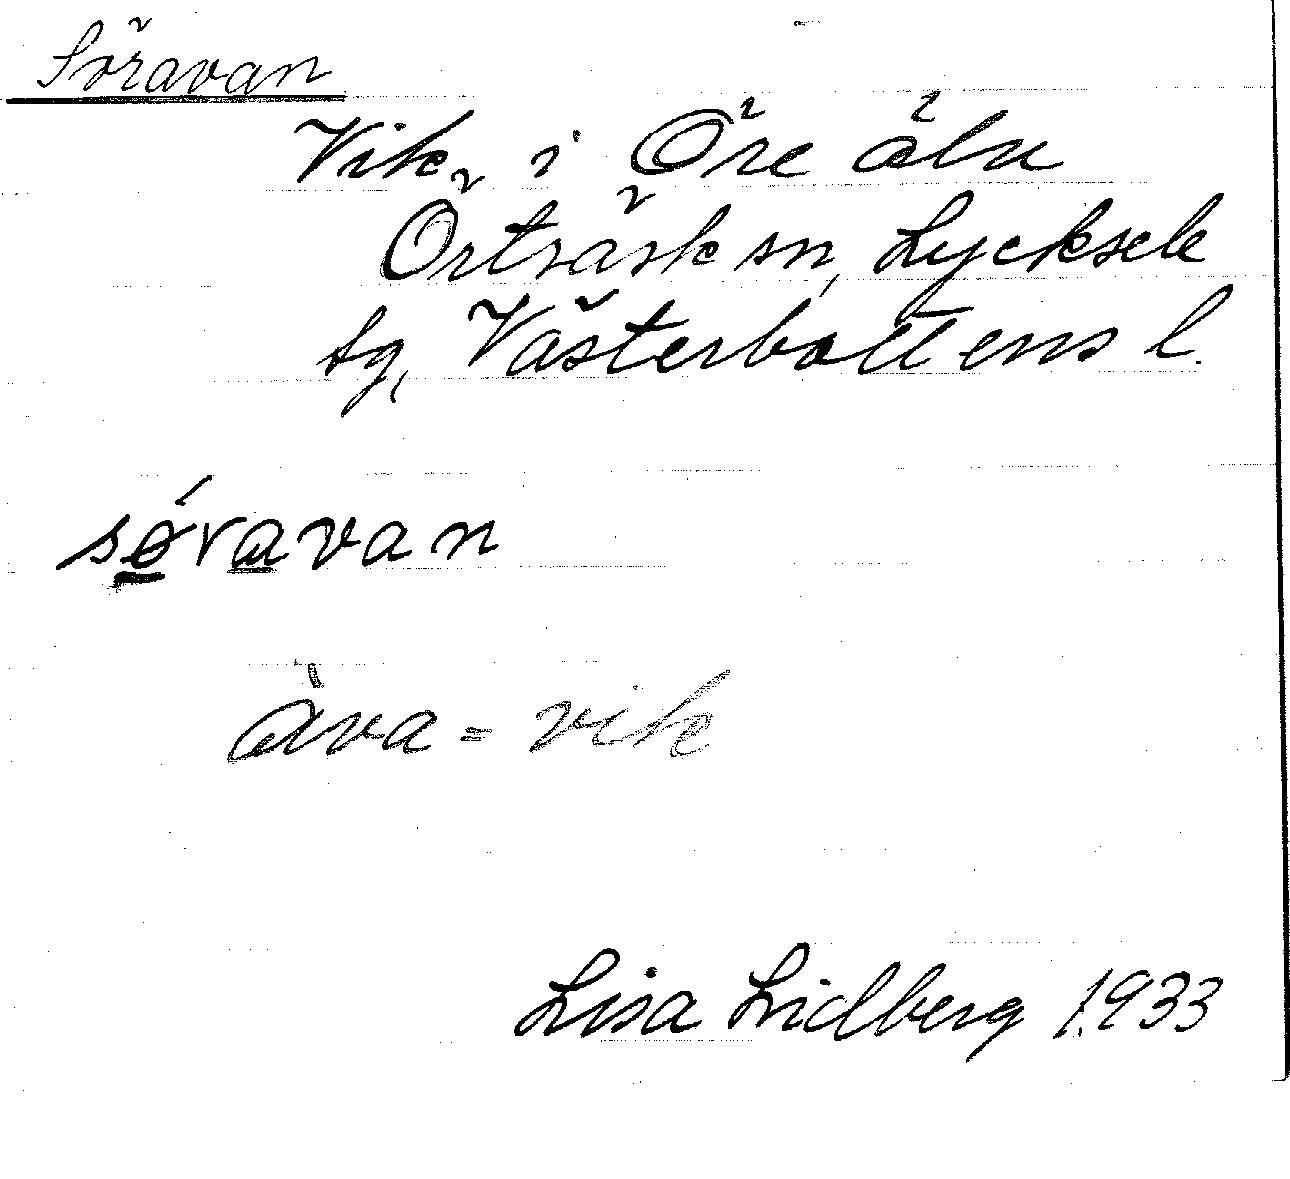 Söravan
Vik i Öre älv
Örträsk sn, Lycksele
tg, Västerbottens l.
sǿravan
àva = vik
Lisa Lidberg 1933